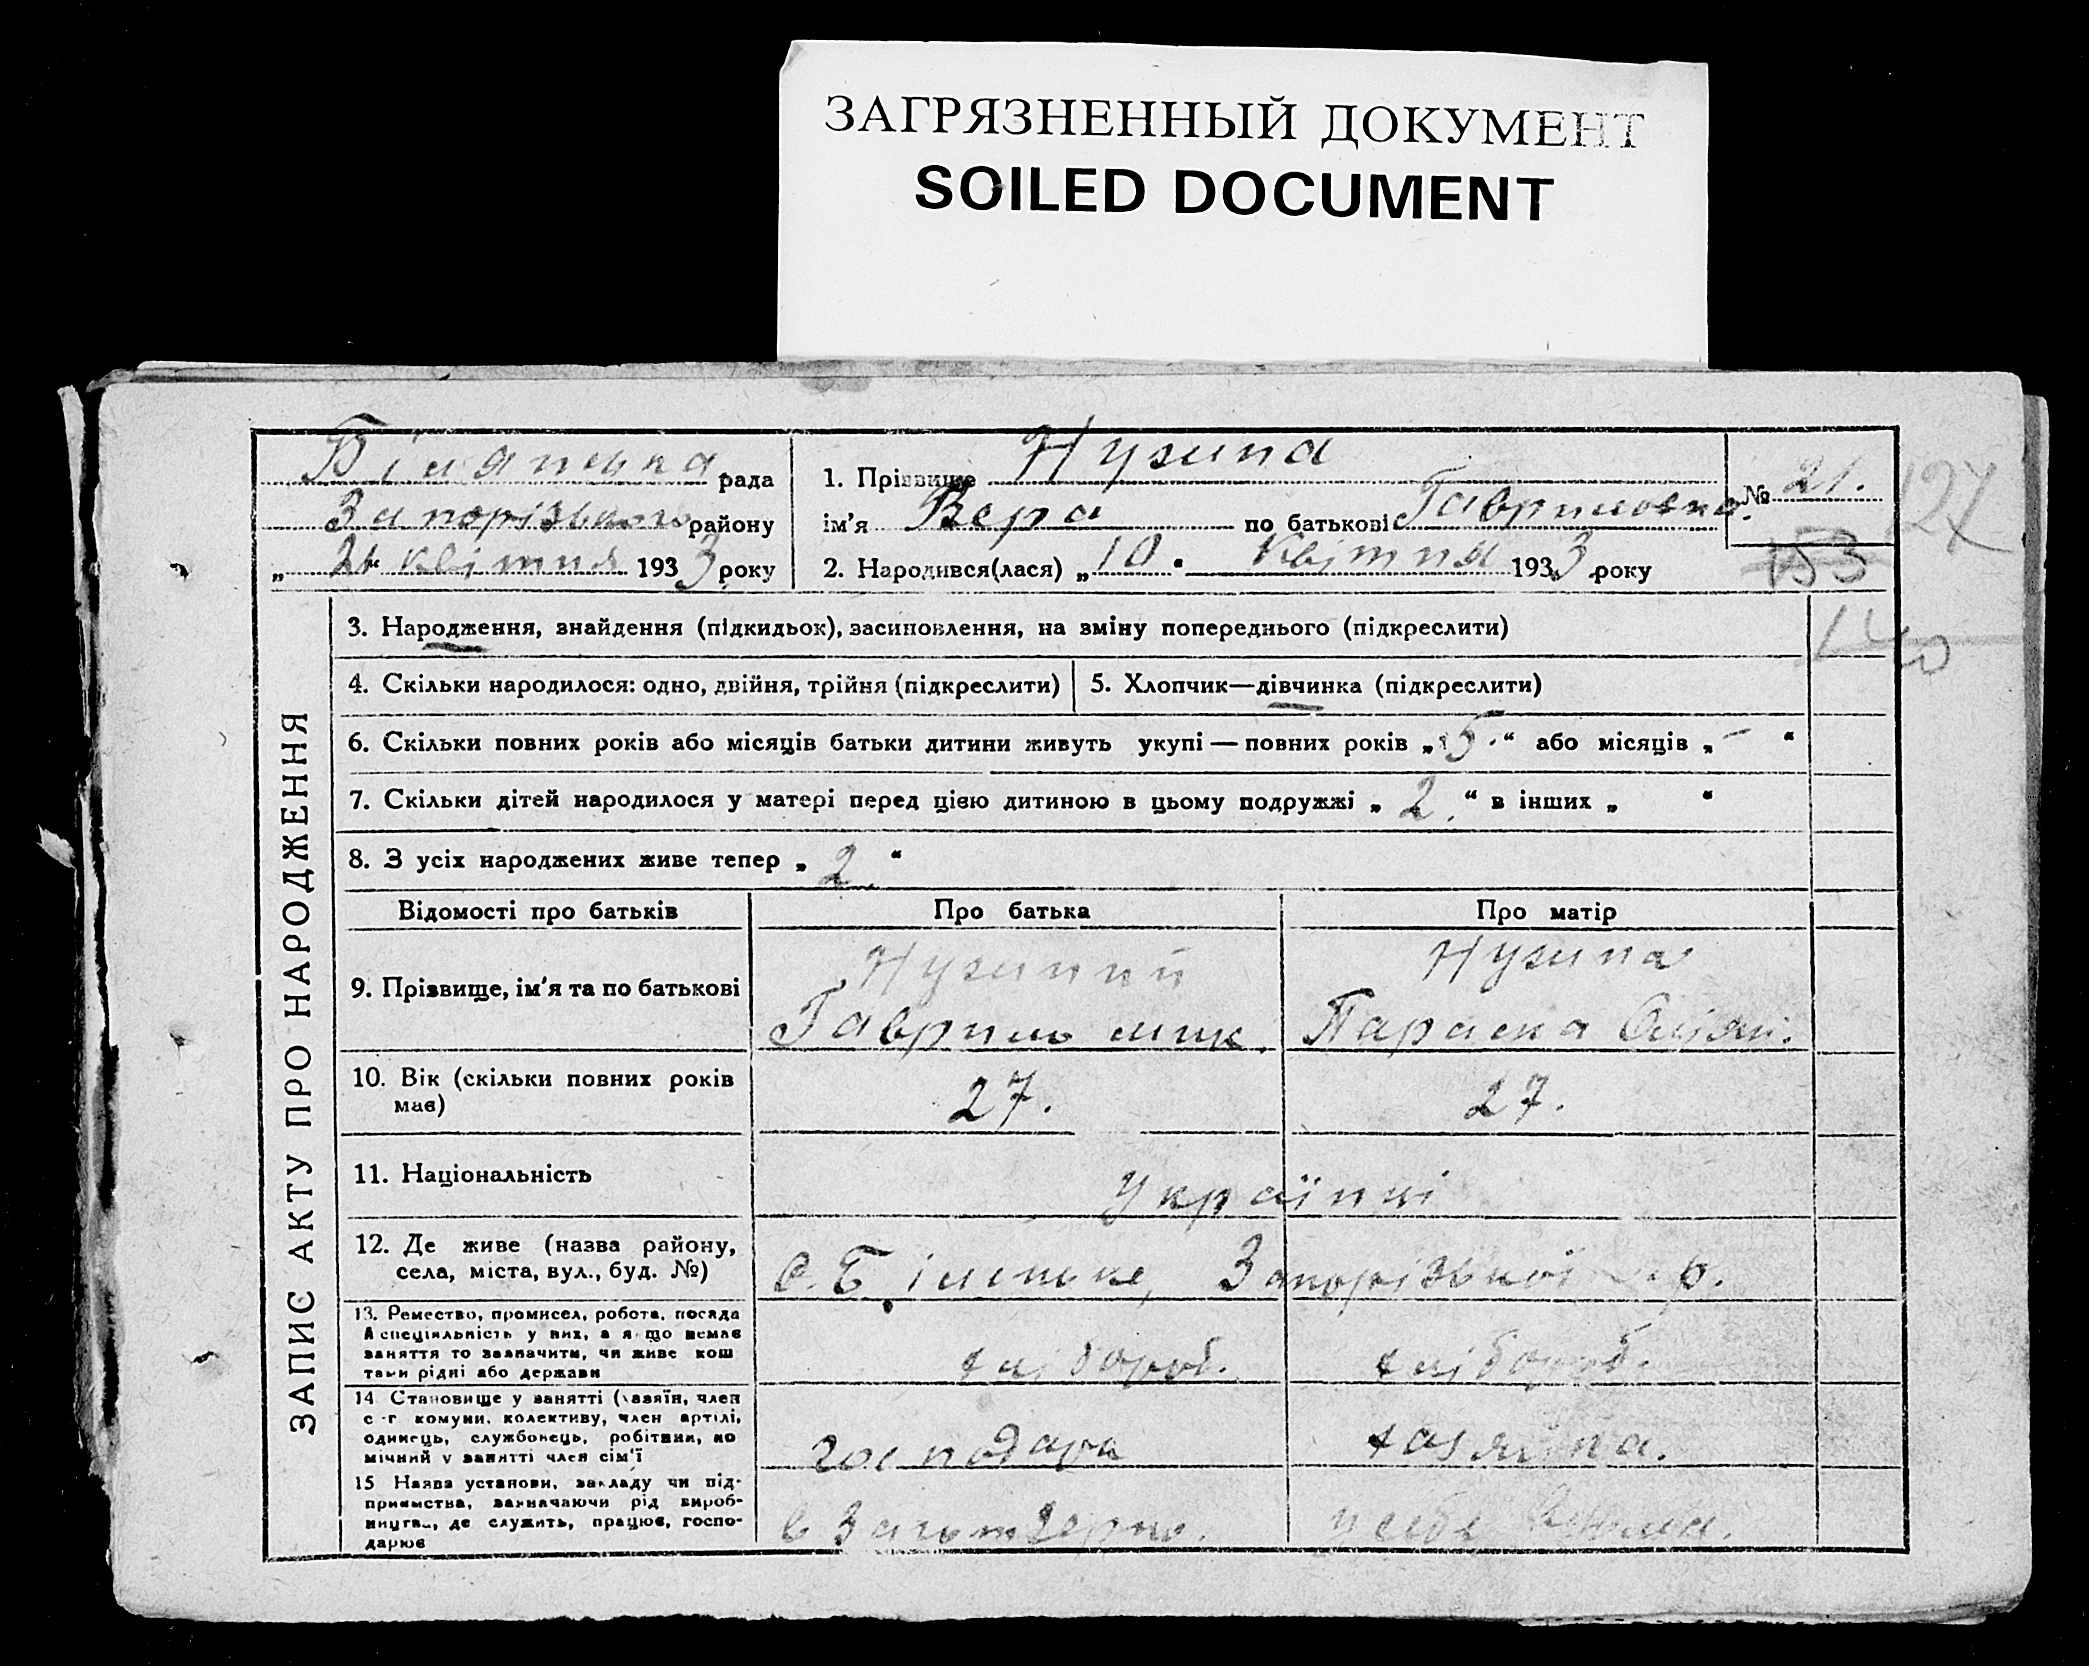 ЗАГРЯЗНЕННЫЙ ДОКУМЕНТ
SOILED DOCUMENT
рада
Запорізького району
„21“ квітня 1933 року
1. Прізвище Нужна
ім’я Вера по батькові Гавриловна
2. Народився(лася) „10“ квітня 1933 року
№ 21.
127
153
140
ЗАПИС АКТУ ПРО НАРОДЖЕННЯ
3. Народження, знайдення (підкидьок), засиновлення, на зміну попереднього (підкреслити)
4. Скільки народилося: одно, двійня, трійня (підкреслити)
5. Хлопчик—дівчинка (підкреслити)
6. Скільки повних років або місяців батьки дитини живуть укупі — повних років „5“ або місяців „–“
7. Скільки дітей народилося у матері перед цією дитиною в цьому подружжі „2.“ в інших „ “
8. З усіх народжених живе тепер „2.“
Відомості про батьків
Про батька
Про матір
9. Прізвище, ім’я та по батькові
Гаврило мик.
Параска
10. Вік (скільки повних років має)
27.
27.
11. Національність
Українці
12. Де живе (назва району, села, міста, вул., буд. №)
с. Біленьке, Запорізької р.
13. Ремество, промисел, робота, посада
й спеціяльність у них, а якщо немає
заняття то зазначити, чи живе кош
тами рідні або держави
хлібороб.
хлібороб.
14 Становище у занятті (хазяїн, член
с-г комуни, колективу, член артілі,
одинець, службовець, робітник, по
мічний у занятті член сім’ї
господарь
хазяйна.
15 Назва установи, закладу чи під-
приємства, зазначаючи рід вироб-
ництва, де служить, працює, госпо-
дарює
в Заготзерно.
у себе